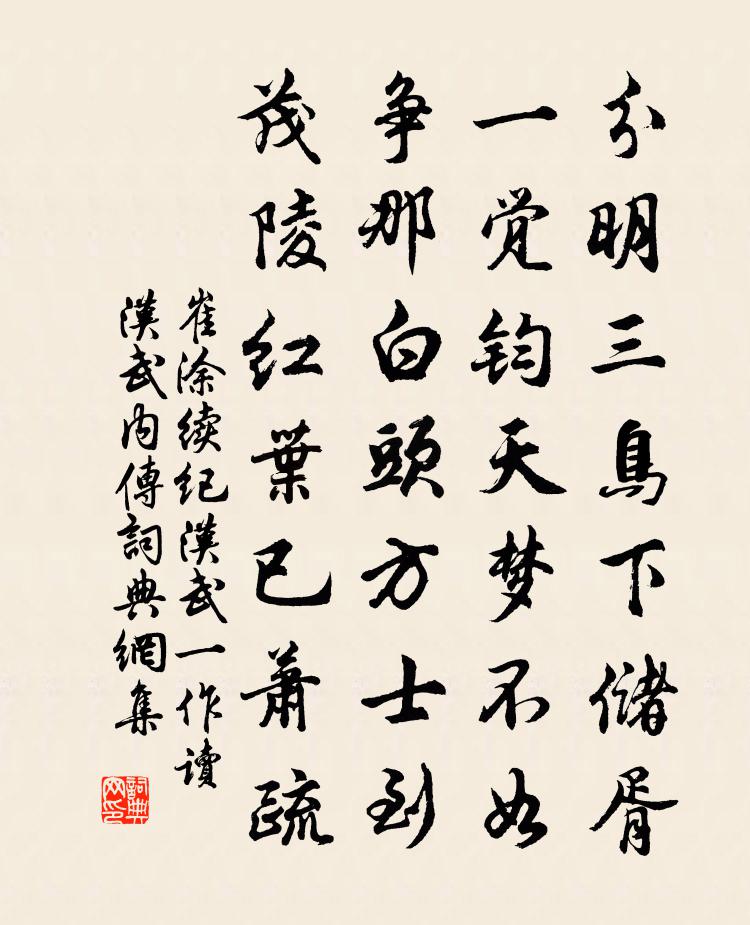 分明三鳥下儲胥
一觉钧天梦不如
争那白頭方士到
茂陵红葉已蕭疏
崔涂续纪漢武一作讀
漢武内傳詞典網集
詞典
网印